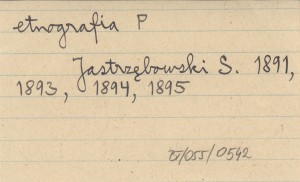 etnografia P
Jastrzębowski S. 1891,
1893, 1894, 1895
/055/0542